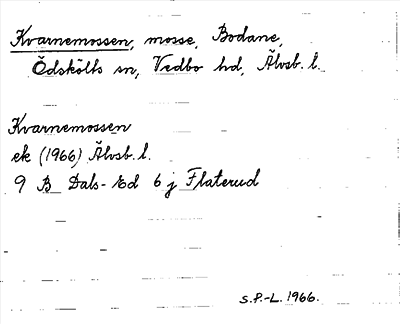 Kvarnemossen, mosse, Bodane,
Ödskölts sn, Vedbo hd, Älvsb. l.
Kvarnemossen
ek (1966) Älvsb. l.
9 B Dals-Ed 6 j Flaterud
S.P.-L. 1966.